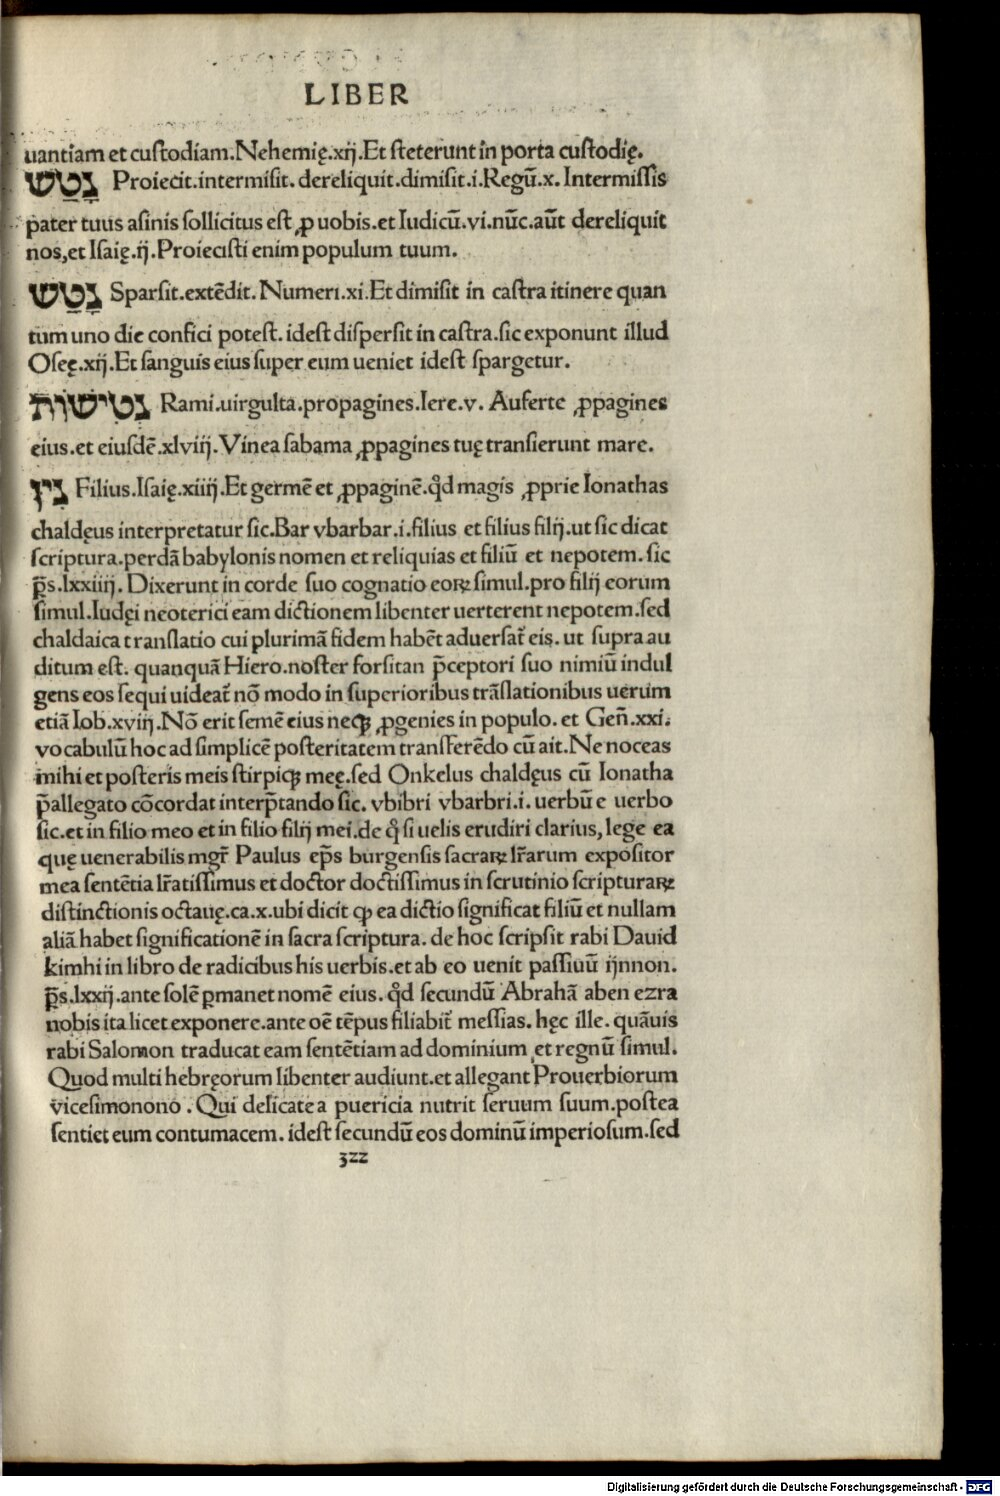 LIBER
uantiam et cuſtodiam.Nehemię.xij.Et ſteterunt in porta cuſtodię.
נָטַשׁ Proiecit.intermiſit.dereliquit.dimiſit.i.Regū.x.Intermiſſis
pater tuus aſinis ſollicitus eſt ꝓ uobis.et Iudicū.vi.nūc.aūt dereliquit
nos,et Iſaię.ij.Proieciſti enim populum tuum.
נָטַשׁ Sparſit.extēdit.Numeri.xi.Et dimiſit in caſtra itinere quan
tum uno die confici poteſt.ideſt diſperſit in caſtra.ſic exponunt illud
Oſeę.xij.Et ſanguis eius ſuper eum ueniet ideſt ſpargetur.
נְטִישׁוֹת Rami.uirgulta.propagines.Iere.v. Auferte ꝓpagines
eius.et eiuſdē.xlviij.Vinea ſabama ꝓpagines tuę tranſierunt mare.
נִין Filius.Iſaię.xiiij.Et germē et ꝓpaginē.qͦd magis ꝓprie Ionathas
chaldęus interpretatur ſic.Bar vbarbar.i.filius et filius filij.ut ſic dicat
ſcriptura.perdā babylonis nomen et reliquias et filiū et nepotem.ſic
p̄s.lxxiiij.Dixerunt in corde ſuo cognatio eoꝝ ſimul.pro filij eorum
ſimul.Iudęi neoterici eam dictionem libenter uerterent nepotem.ſed
chaldaica tranſlatio cui plurimā fidem habēt aduerſat̄ eis.ut ſupra au
ditum eſt.quanquā Hiero.noſter forſitan p̄ceptori ſuo nimiū indul
gens eos ſequi uideat̄ nō modo in ſuperioribus trāſlationibus uerum
etiā Iob.xviij.Nō erit ſemē eius neqꝫ ꝓgenies in populo.et Geñ.xxi.
vocabulū hoc ad ſimplicē poſteritatem tranſferēdo cū ait.Ne noceas
mihi et poſteris meis ſtirpiqꝫ meę.ſed Onkelus chaldęus cū Ionatha
p̄allegato cōcordat interp̄tando ſic.vbibri vbarbri.i.uerbū e uerbo
ſic.et in filio meo et in filio filij mei.de qͦ ſi uelis erudiri clarius,lege ea
quę uenerabilis mgr̄ Paulus ep̄s burgenſis ſacraꝝ lr̄arum expoſitor
mea ſentētia lr̄atiſſimus et doctor doctiſſimus in ſcrutinio ſcripturaꝝ
diſtinctionis octauę.ca.x.ubi dicit ꝙ ea dictio ſignificat filiū et nullam
aliā habet ſignificationē in ſacra ſcriptura.de hoc ſcripſit rabi Dauid
kimhi in libro de radicibus his uerbis.et ab eo uenit paſſiuū ijnnon.
p̄s.lxxij.ante ſolē ꝑmanet nomē eius.qͦd ſecundū Abrahā aben ezra
nobis ita licet exponere.ante oē tēpus filiabit̄ meſſias.hęc ille.quāuis
rabi Salomon traducat eam ſentētiam ad dominium et regnū ſimul.
Quod multi hebręorum libenter audiunt.et allegant Prouerbiorum
viceſimonono.Qui delicate a puericia nutrit ſeruum ſuum.poſtea
ſentiet eum contumacem.ideſt ſecundū eos dominū imperioſum.ſed
322
Digitalisierung gefördert durch die Deutsche Forschungsgemeinschaft - DFG